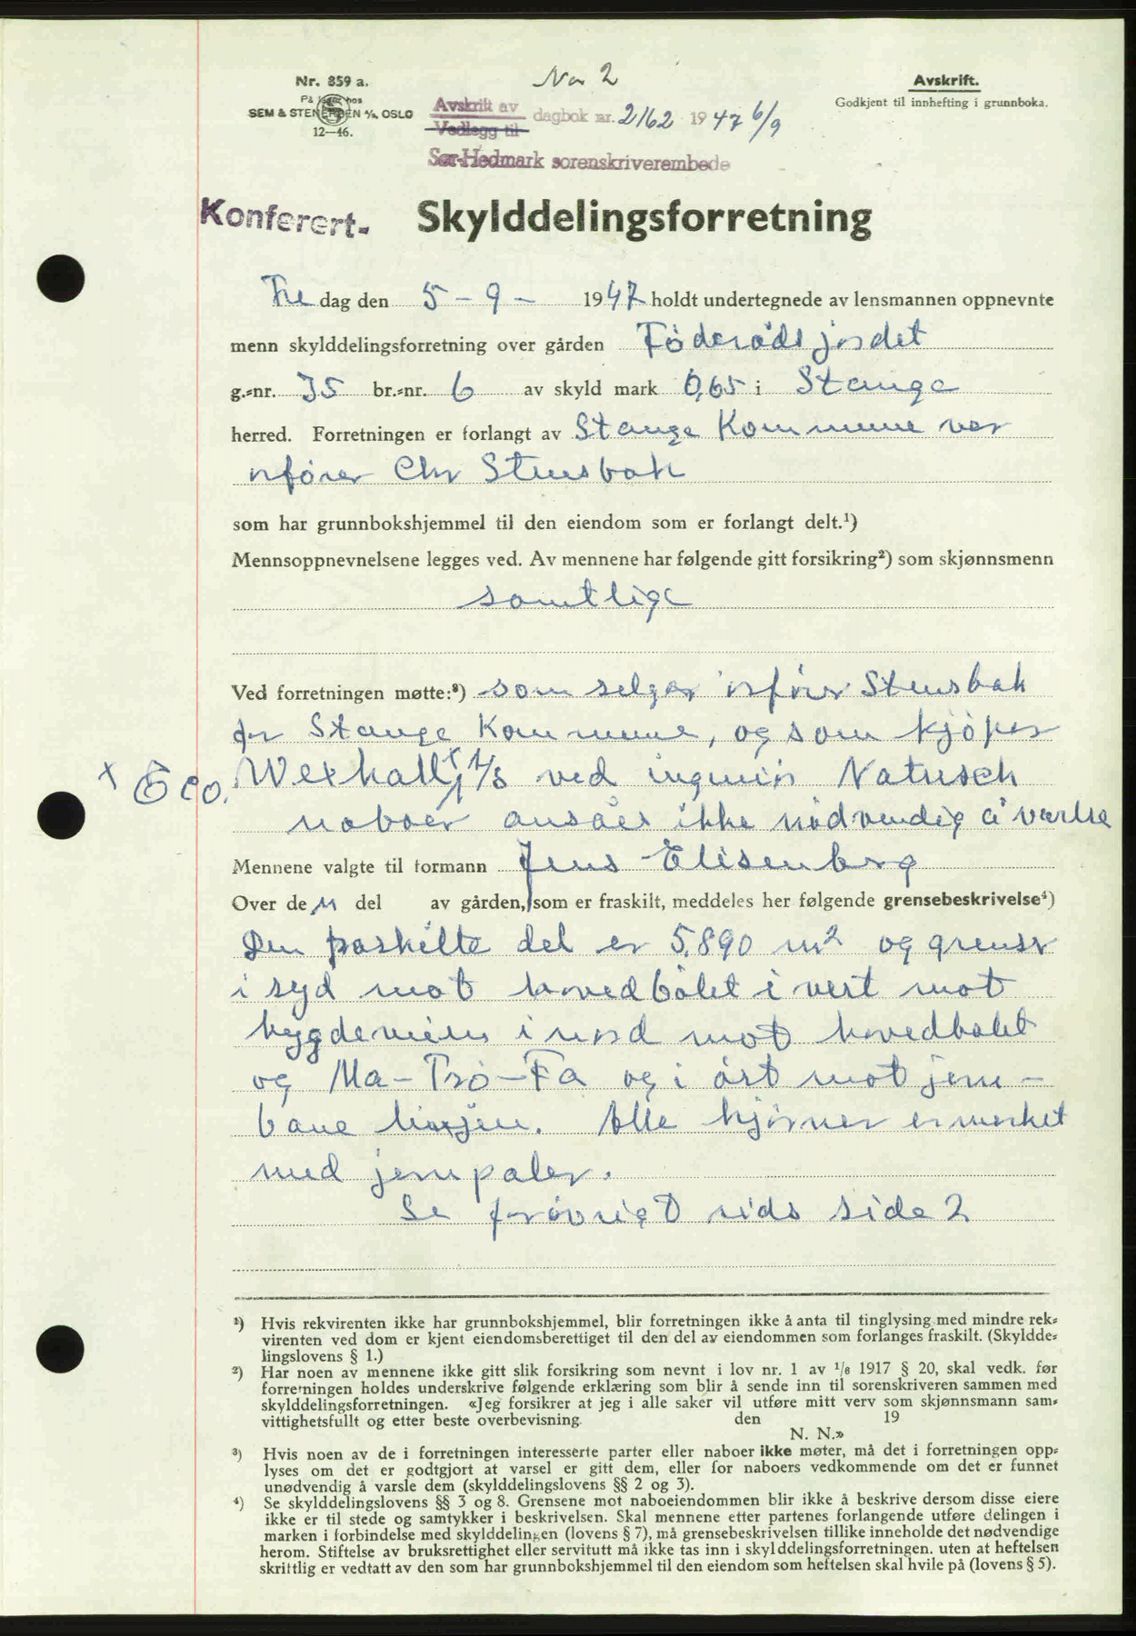 Nr. 859 a.
No 2
Avskrift.
På lager hos
SEM & STENERSEN A/S, OSLO
12—46.
Godkjent til innhefting i grunnboka.
Avskrift av
Vedlegg til
dagbok nr. 2162 1947 6/9
Sør-Hedmark sorenskriverembede
Konferert.
Skylddelingsforretning
Fre dag den 5 - 9 - 1947 holdt undertegnede av lensmannen oppnevnte
menn skylddelingsforretning over gården Föderådsjordet
g.=nr. 35 br.=nr. 6 av skyld mark 0,65 i Stange
herred. Forretningen er forlangt av Stange Kommune ver
ofører Chr Stensbak
som har grunnbokshjemmel til den eiendom som er forlangt delt.¹)
Mennsoppnevnelsene legges ved. Av mennene har følgende gitt forsikring²) som skjønnsmenn
samtlige
Ved forretningen møtte:³) som selger ofører Stensbak
for Stange Kommune, og som kjøper
x & Co. Wexhall x A/S ved ingeniör Natusch
naboer ansåes ikke nödvendig å varsle
Mennene valgte til formann Jens Elisenberg
Over den del av gården, som er fraskilt, meddeles her følgende grensebeskrivelse⁴)
Den fraskilte del er 5.890 m2 og grenser
i syd mot hovedbölet i vest mot
bygdeveien i nord mot hovedbölet
og Ma-Trö-Fa og i öst mot jern-
bane linjen. Alle hjörner er merket
med jernpaler.
Se forövrigt rids side 2
¹) Hvis rekvirenten ikke har grunnbokshjemmel, blir forretningen ikke å anta til tinglysing med mindre rek=
virenten ved dom er kjent eiendomsberettiget til den del av eiendommen som forlanges fraskilt. (Skyldde=
lingslovens § 1.)
²) Har noen av mennene ikke gitt slik forsikring som nevnt i lov nr. 1 av 1/6 1917 § 20, skal vedk. før
forretningen holdes underskrive følgende erklæring som blir å sende inn til sorenskriveren sammen med
skylddelingsforretningen. «Jeg forsikrer at jeg i alle saker vil utføre mitt verv som skjønnsmann sam=
vittighetsfullt og etter beste overbevisning. den 19
N. N.»
³) Hvis noen av de i forretningen interesserte parter eller naboer ikke møter, må det i forretningen opp=
lyses om det er godtgjort at varsel er gitt dem, eller for naboers vedkommende om det er funnet
unødvendig å varsle dem (skylddelingslovens §§ 2 og 3).
⁴) Se skylddelingslovens §§ 3 og 8. Grensene mot naboeiendommen blir ikke å beskrive dersom disse eiere
ikke er til stede og samtykker i beskrivelsen. Skal mennene etter partenes forlangende utføre delingen i
marken i forbindelse med skylddelingen (lovens § 7), må grensebeskrivelsen tillike inneholde det nødvendige
herom. Stiftelse av bruksrettighet eller servitutt må ikke tas inn i skylddelingsforretningen. uten at heftelsen
skriftlig er vedtatt av den som har grunnbokshjemmel til den eiendom som heftelsen skal hvile på (lovens § 5).